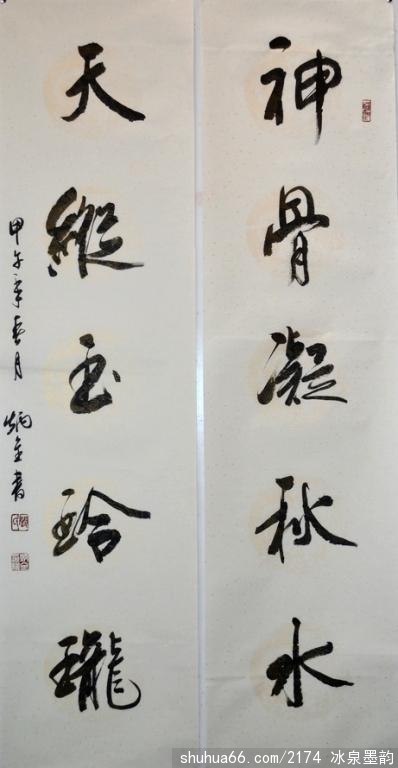 神骨凝秋水
天縱玉玲瓏
甲午年春月 炳金書
shuhua66.com/2174 冰泉墨韵